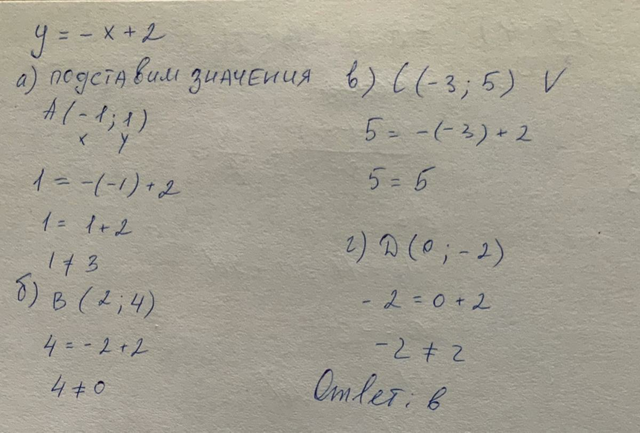 y = - x + 2
а) подставим значения
A(-1; 1)
x y
1 = -(-1) + 2
1 = 1 + 2
1 ≠ 3
б) B (2; 4)
4 = -2 + 2
4 ≠ 0
в) C (-3; 5) V
5 = -(-3) + 2
5 = 5
г) D (0; -2)
-2 = 0 + 2
-2 ≠ 2
Ответ: в